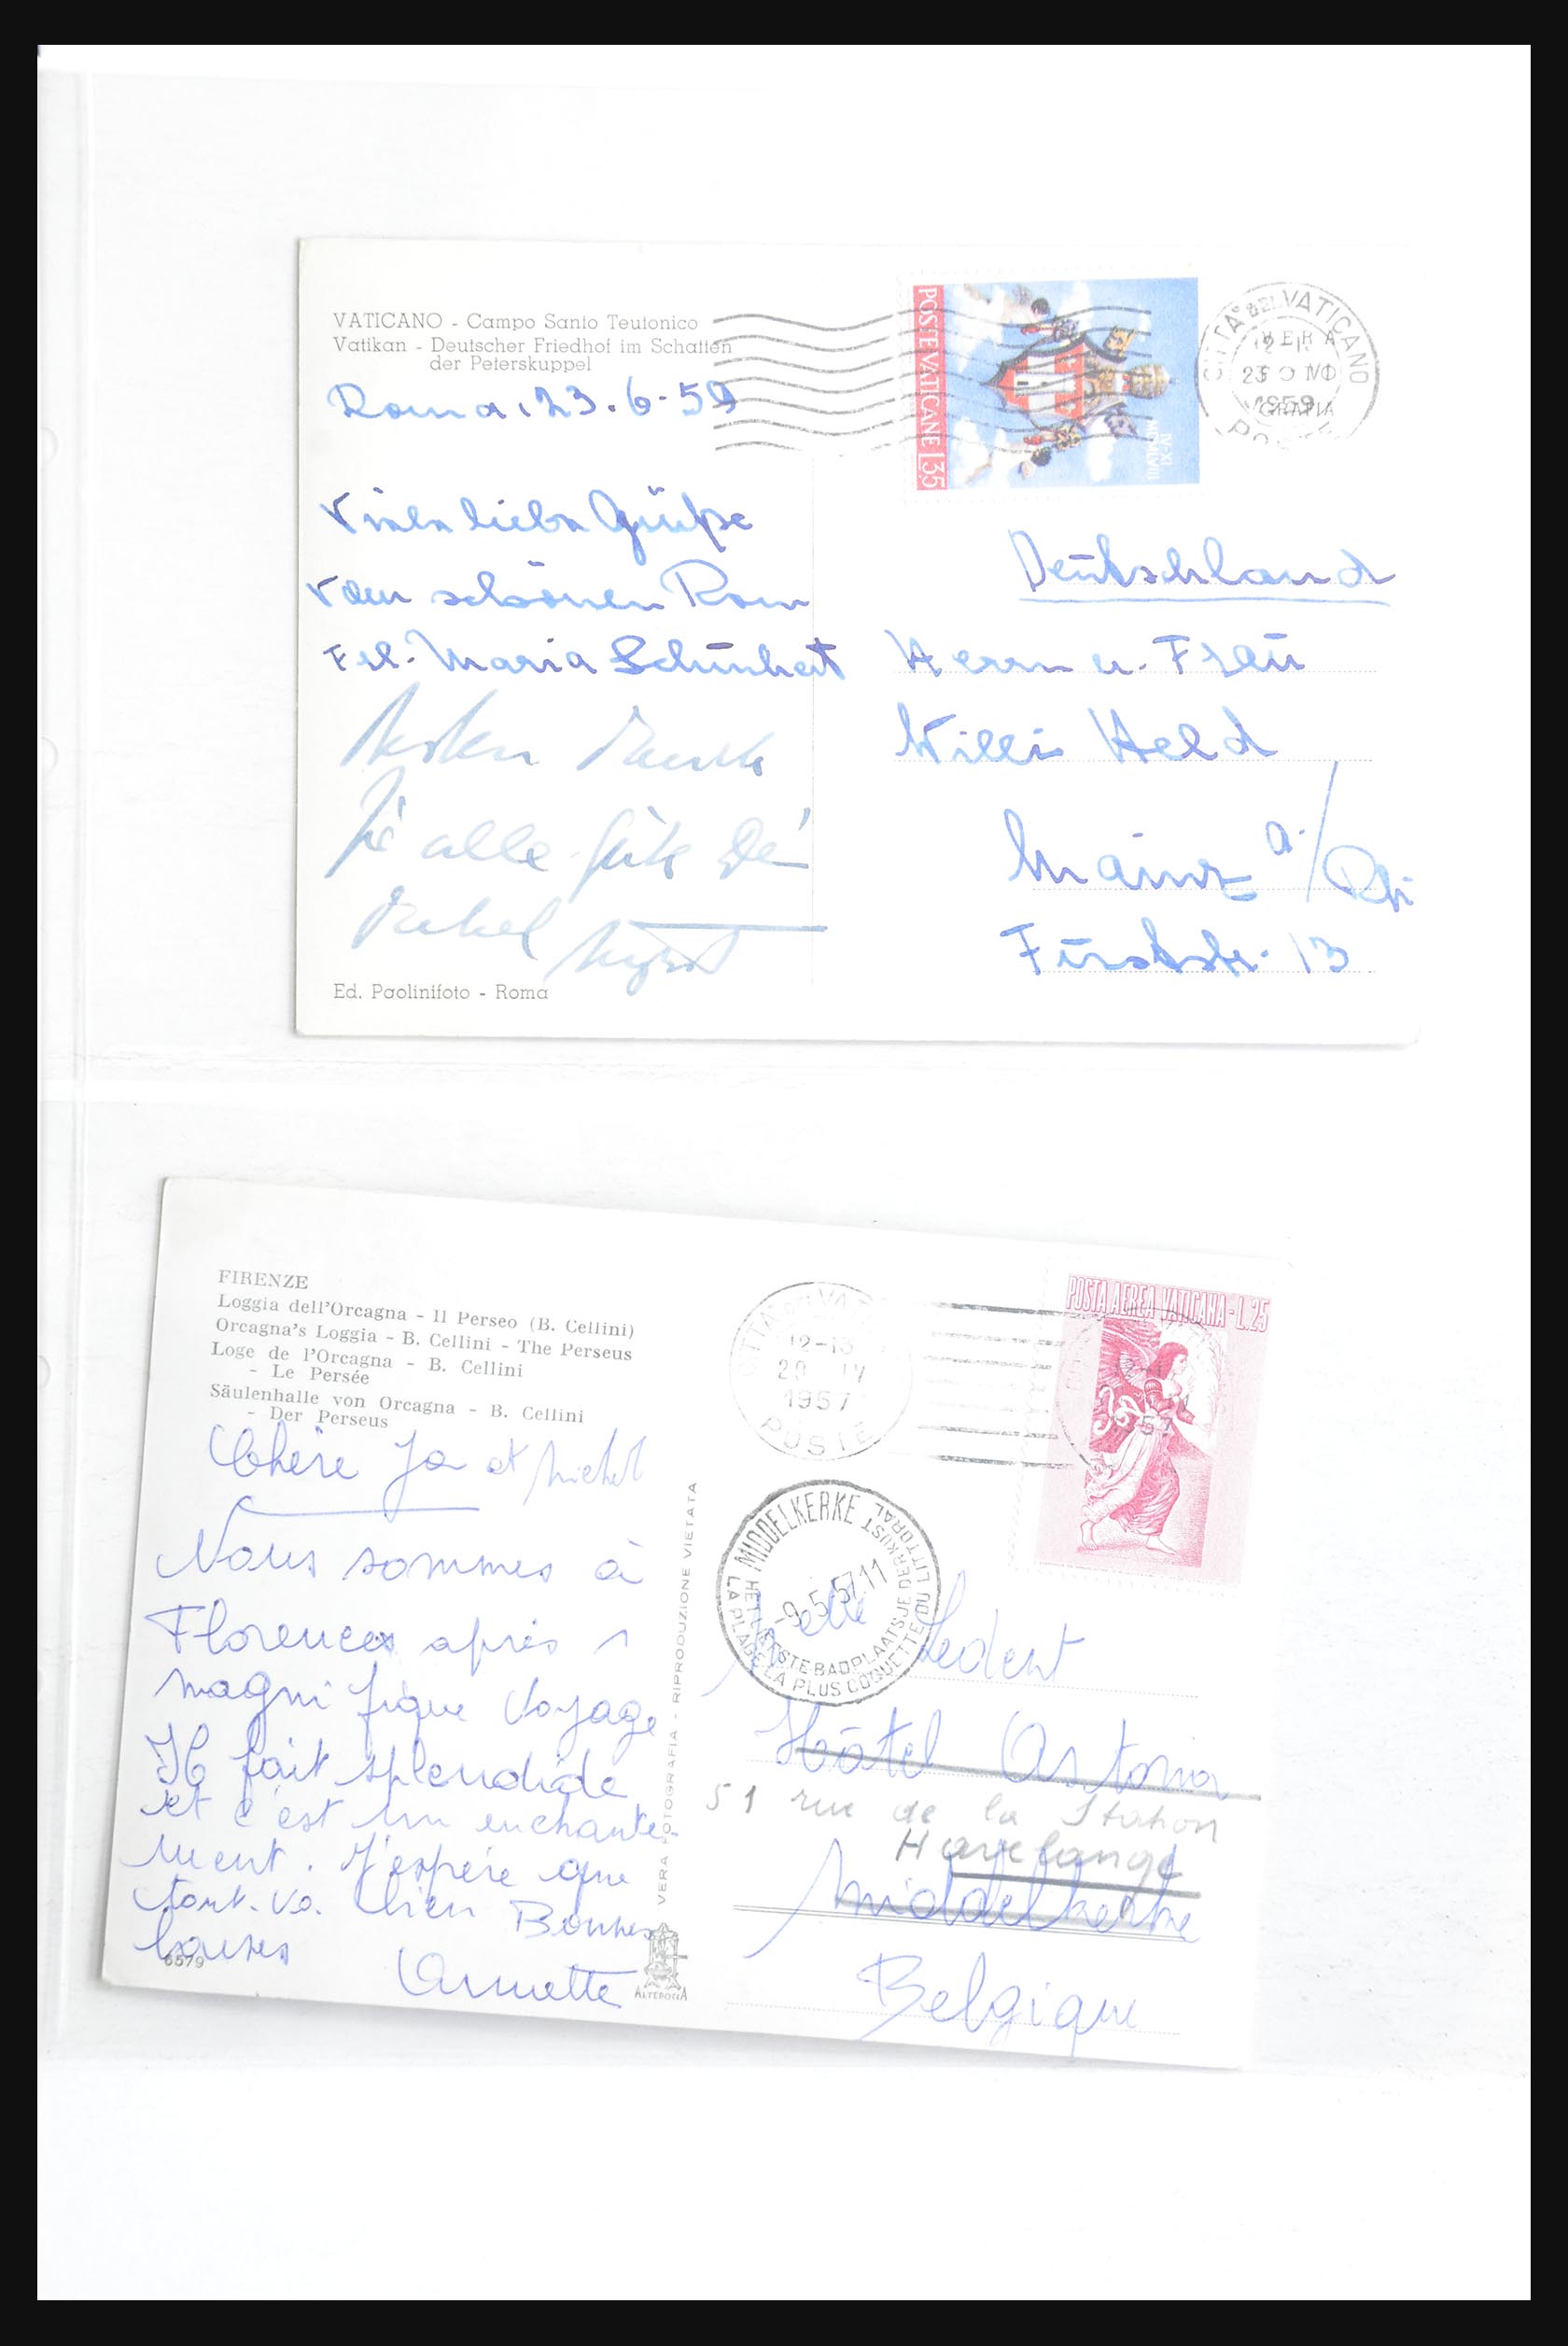 VATICANO - Campo Santo Teutonico
Vatikan - Deutscher Friedhof im Schatten
der Peterskuppel
Roma, 23.6.59
Viele liebe Grüße
vom schönen Rom
Frl. Maria
Besten Dank
für alle Güte Dein
Onkel
Ed. Paolinifoto - Roma
POSTE VATICANE L.35
IV·XI
MCMLVIII
CITTÀ DEL VATICANO
23
1959
POSTE
Deutschland
Herrn u. Frau
Willi Held
Mainz a/Rh
Fürststr. 13
FIRENZE
Loggia dell'Orcagna - Il Perseo (B. Cellini)
Orcagna's Loggia - B. Cellini - The Perseus
Loge de l'Orcagna - B. Cellini
- Le Persée
Säulenhalle von Orcagna - B. Cellini
- Der Perseus
Chère Ja et Michel
Nous sommes à
Florence après 1
magnifique voyage
Il fait splendide
et c'est un enchante-
ment. J'espère que
tout va bien Bonnes
baises
Annette
6579
VERA FOTOGRAFIA - RIPRODUZIONE VIETATA
ALTEROCCA
12-13
29 IV
1957
POSTE
POSTA AEREA VATICANA - L.25
MIDDELKERKE
-9.5.57.11
HET LIEFSTE BADPLAATSJE DER KUST
LA PLAGE LA PLUS COQUETTE DU LITTORAL
Melle Ledent
Hôtel Astoria
51 rue de la Station
Havelange
Middelkerke
Belgique